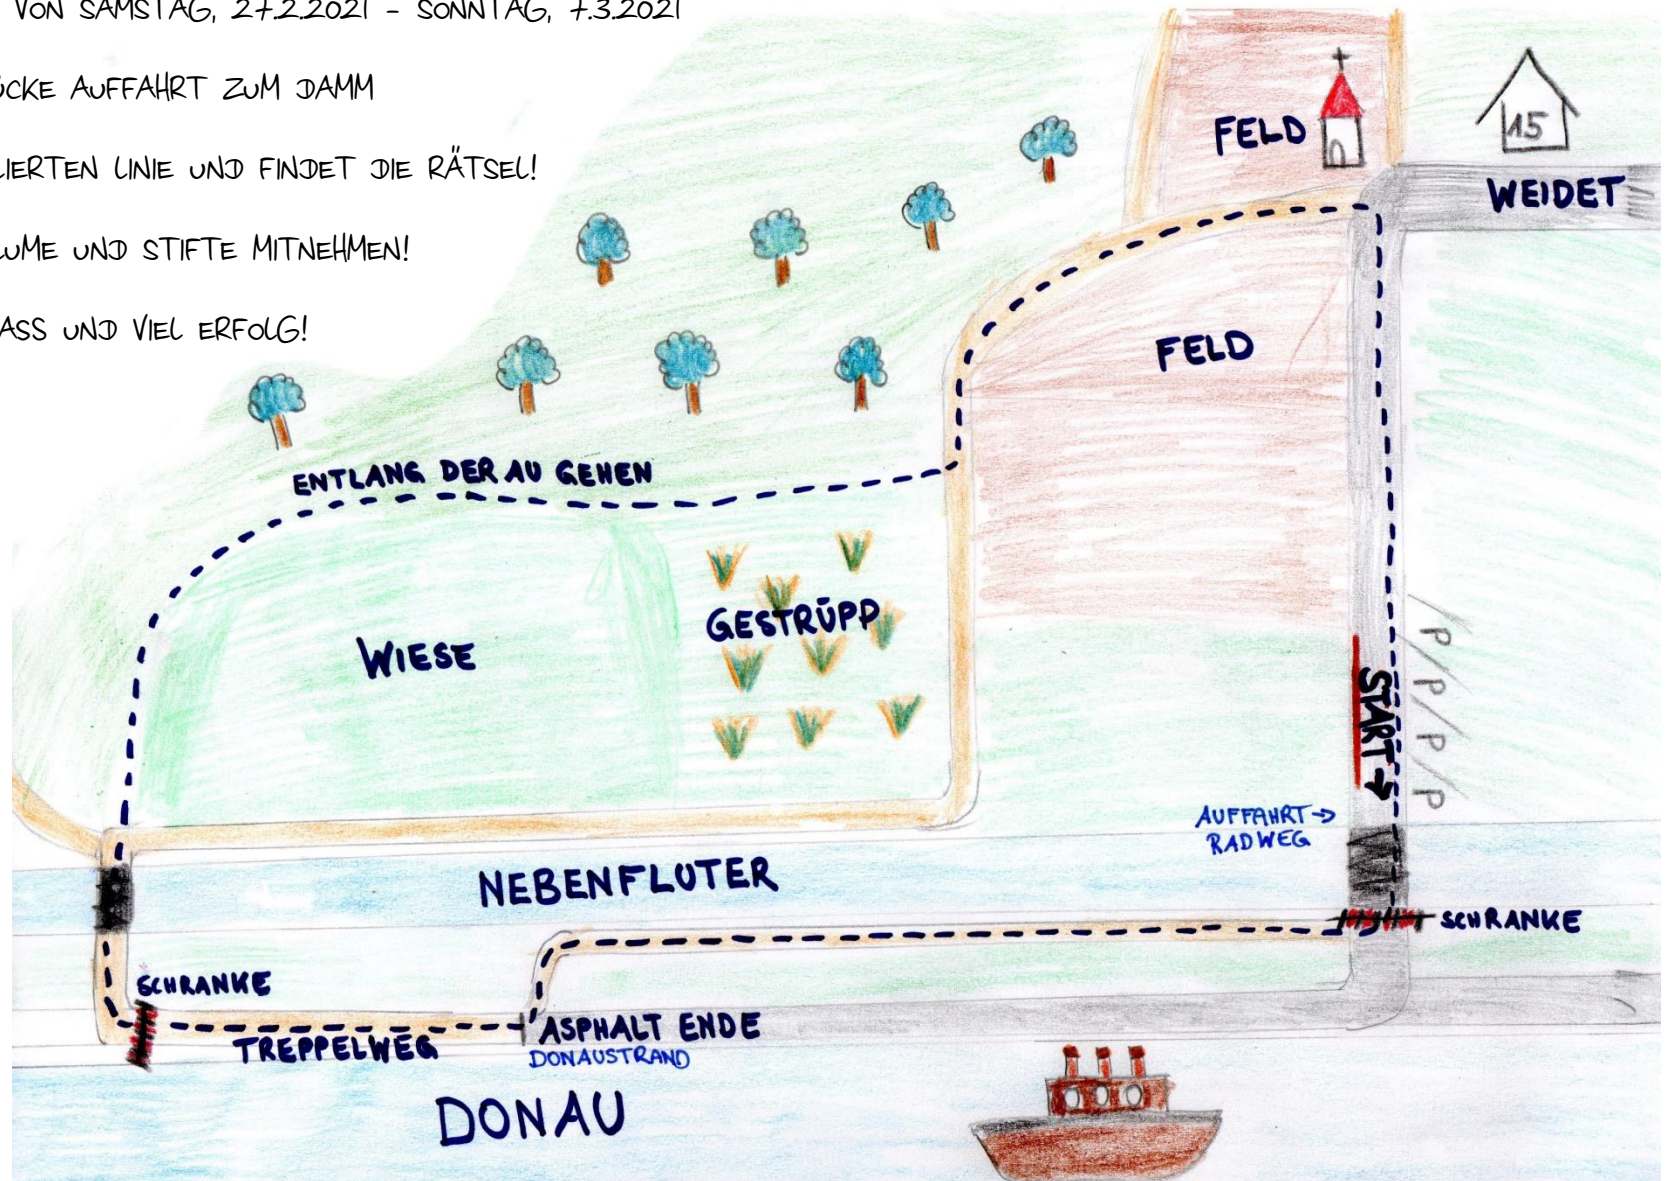 VON SAMSTAG, 27.2.2021 - SONNTAG, 7.3.2021
ÜCKE AUFFAHRT ZUM DAMM
LIERTEN LINIE UND FINDET DIE RÄTSEL!
UME UND STIFTE MITNEHMEN!
ASS UND VIEL ERFOLG!
FELD
15
WEIDET
FELD
ENTLANG DER AU GEHEN
WIESE
GESTRÜPP
START →
P/P/P/P
AUFFAHRT →
RADWEG
NEBENFLUTER
SCHRANKE
SCHRANKE
TREPPELWEG
ASPHALT ENDE
DONAUSTRAND
DONAU